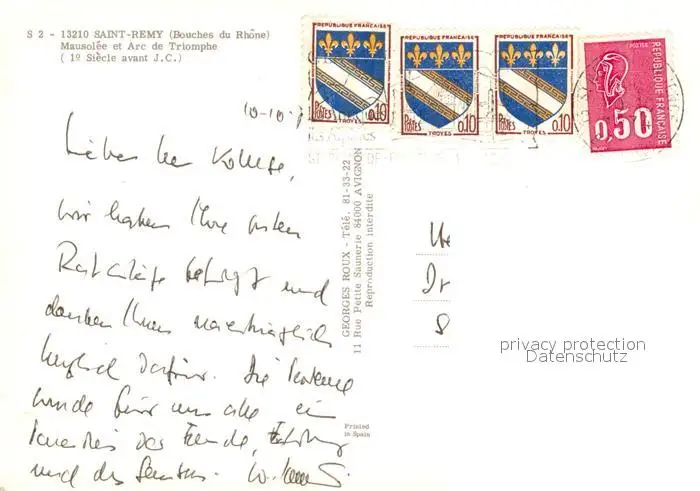 S 2 - 13210 SAINT-REMY (Bouches du Rhône)
Mausolée et Arc de Triomphe
( 1º Siècle avant J.C.)
REPUBLIQUE FRANÇAISE
Postes 0,10
TROYES
REPUBLIQUE FRANÇAISE
Postes 0,10
TROYES
REPUBLIQUE FRANÇAISE
Postes 0,10
TROYES
POSTES
REPUBLIQUE FRANÇAISE
0,50
10-10-
Lieber Herr
wir haben Ihre guten
Ratschläge befolgt und
danken Ihnen nachträglich
herzlich dafür. Die Provence
wurde für uns alle ein
Paradies der Freude,
und des
GEORGES ROUX - Télé. 81-33-22
11 Rue Petite Saunerie 84000 AVIGNON
Reproduction interdite
Printed
in Spain
Dr
privacy protection
Datenschutz